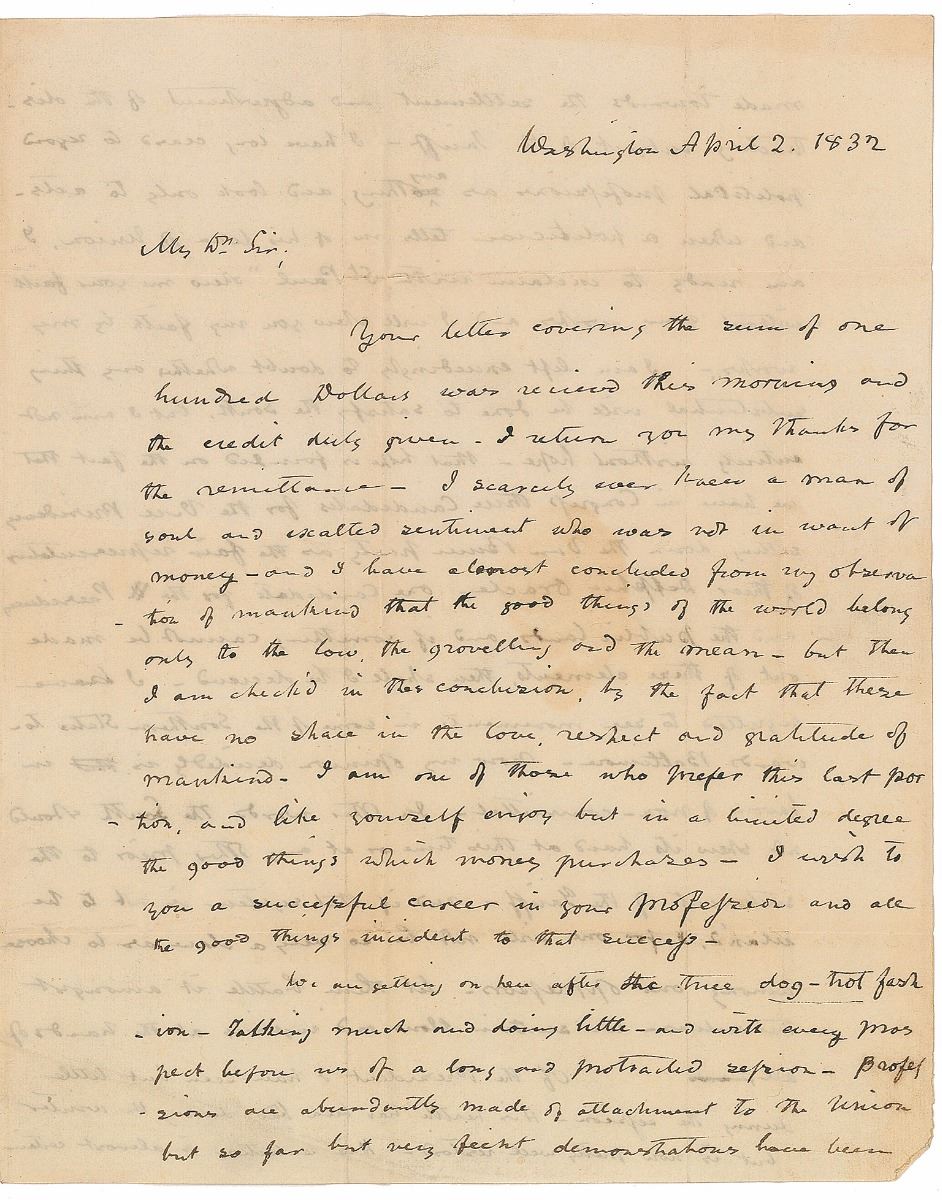 Washington April 2. 1832
My Dr. Sir,
Your letter covering the sum of one
hundred Dollars was recieved this morning and
the credit duly given - I return you my thanks for
the remittance - I scarcely ever knew a man of
soul and exalted sentiment who was not in want of
money - and I have almost concluded from my observa
- tion of mankind that the good things of the world belong
only to the low, the grovelling and the mean - but then
I am check'd in this conclusion, by the fact that these
have no share in the love, respect and gratitude of
mankind - I am one of those who prefer this last por
- tion, and like yourself enjoy but in a limited degree
the good things which money purchases - I wish to
you a successful career in your profession and all
the good things incident to that success -
We are getting on here after the true dog-trot fash
- ion - Talking much and doing little - and with every pros
pect before us of a long and protracted session - Profes
- sions are abundantly made of attachment to the Union
but so far but very feeble demonstrations have been